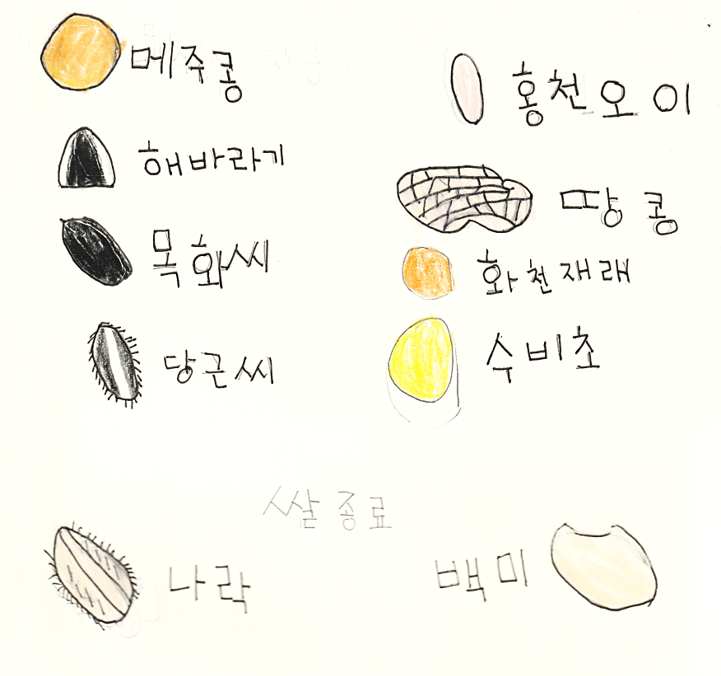 메주콩
해바라기
목화씨
당근씨
홍천오이
땅콩
화천재래
수비초
쌀종료
나락
백미